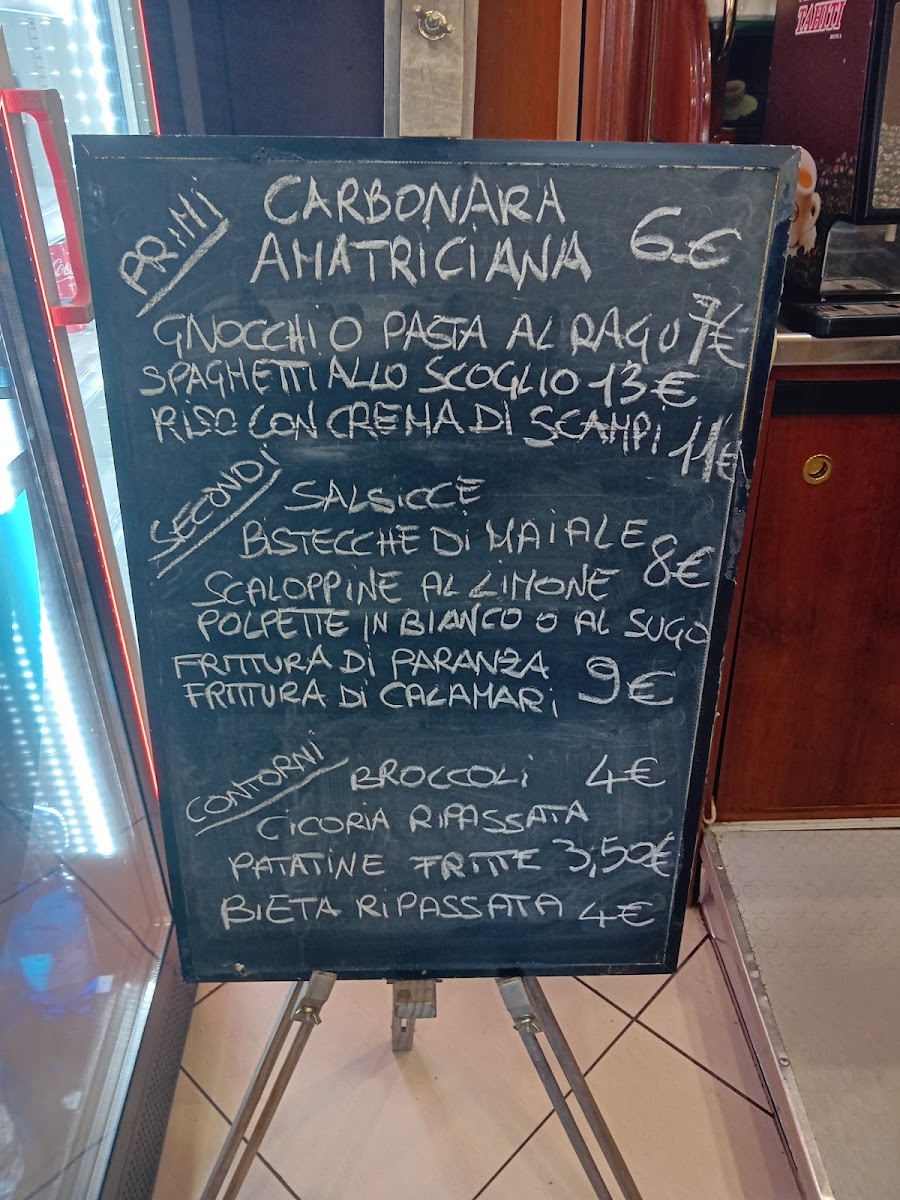 TAHITI
PRIMI
CARBONARA
AMATRICIANA 6€
GNOCCHI O PASTA AL RAGU 7€
SPAGHETTI ALLO SCOGLIO 13€
RISO CON CREMA DI SCAMPI 11€
SECONDI
SALSICCE
BISTECCHE DI MAIALE 8€
SCALOPPINE AL LIMONE
POLPETTE IN BIANCO O AL SUGO
FRITTURA DI PARANZA 9€
FRITTURA DI CALAMARI
CONTORNI
BROCCOLI 4€
CICORIA RIPASSATA
PATATINE FRITTE 3,50€
BIETA RIPASSATA 4€